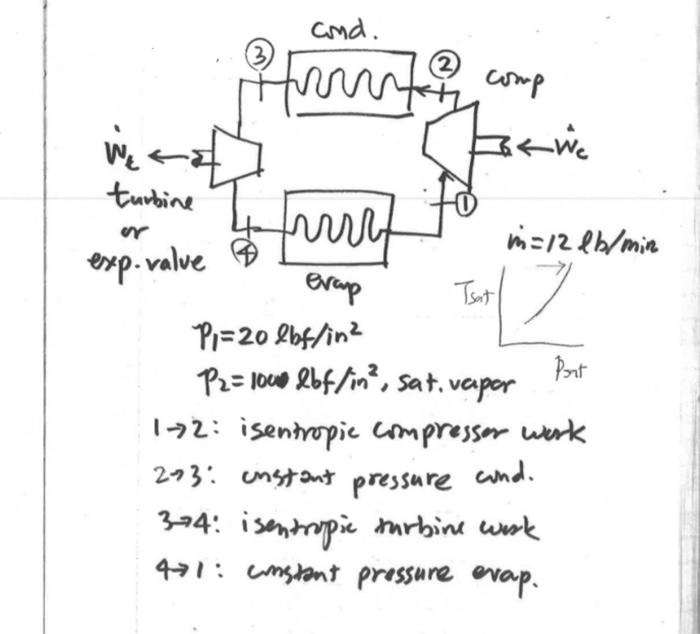 cond.
③
②
comp
Ẇt
Ẇc
turbine
or
exp. valve
①
④
evap
ṁ=12 lb/min
Tsat
Psat
P1=20 lbf/in²
lbf/in², sat. vapor
1→2: isentropic compressor work
2→3: constant pressure cond.
3→4: isentropic turbine work
4→1: constant pressure evap.